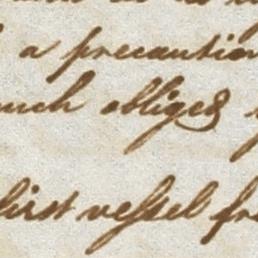 a precaution
much obliged
first vessel fr